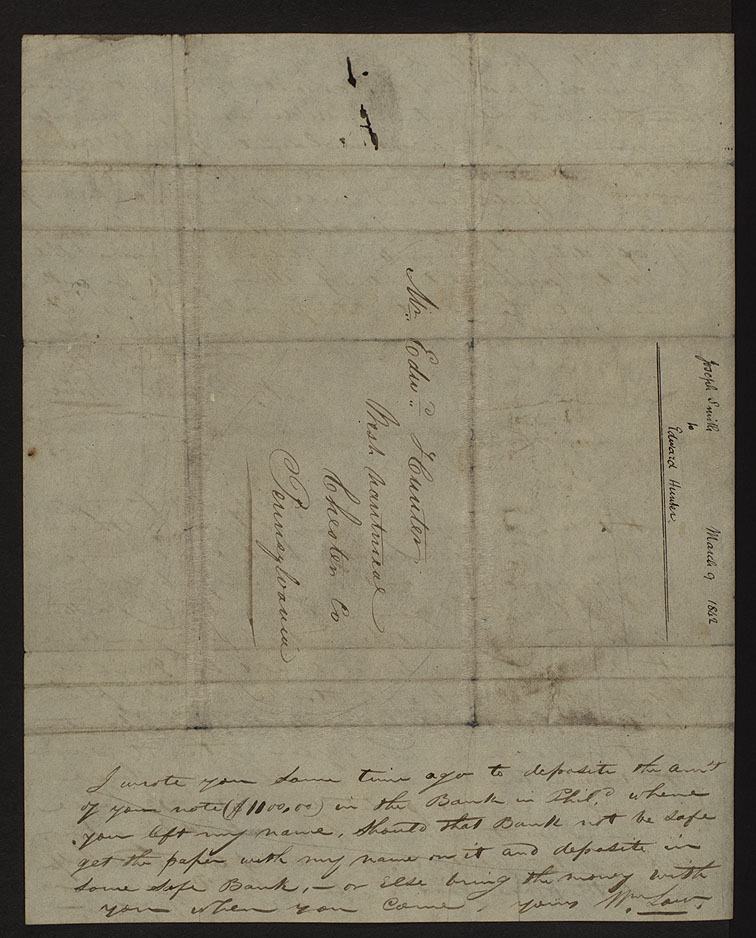 Mr. Edwd. Hunter
West Nantmeal
Chester Co
Pennsylvania
Joseph Smith
to
Edward Hunter.
March 9 1842
I wrote you some time ago to deposite the amt
of your note ($1100,00) in the Bank in Phild. where
you left my name, Should that Bank not be safe
get the paper with my name on it and deposite in
some safe Bank, — or Else bring the money with
you when you come, yours Wm. Law.